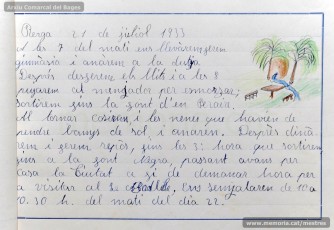 Arxiu Comarcal del Bages
Berga 21 de juliol 1933
A les 7 del matí ens llevàrem, ferem
gimnàsia i anàrem a la dutxa
Després desferem els llits i a les 8
pujarem al menjador per esmorzar;
sortirem fins la font d'en
Al tornar cosiren i les nenes que havien de
pendre banys de sol, i anaren. Després dinà
rem i ferem repòs, fins les 3: hora que sortirem
fins a la font Negra, passant avans per
casa la Ciutat a fi de demanar hora per
a visitar al Sr. Ens senyalaren de 10 a
10.30 h. del matí del dia 22.
www.memoria.cat/mestres